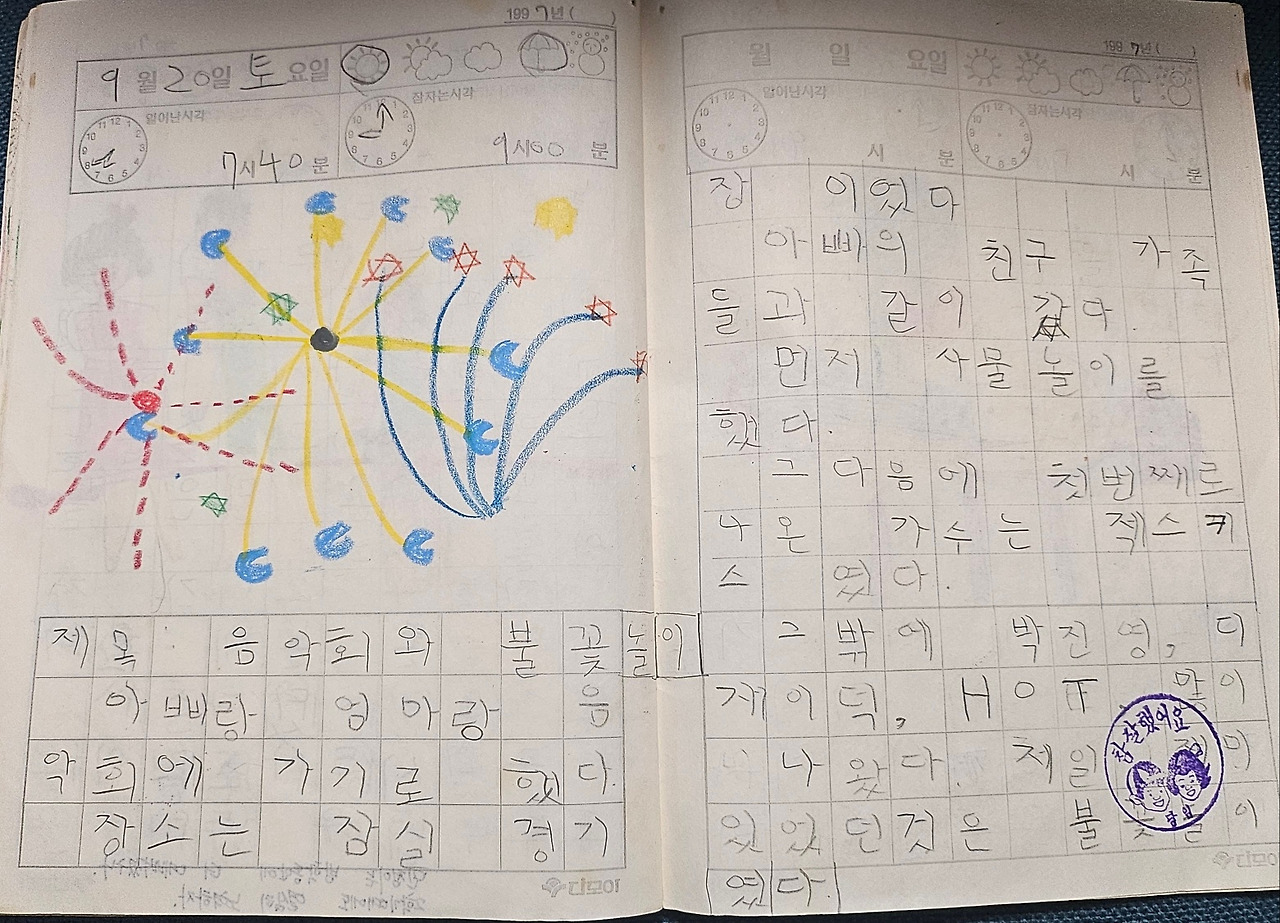 1997년( )
9월 20일 토요일
일어난시각 잠자는시각
7시40분 9시00분
제목 음악회와 불꽃놀이
아빠랑 엄마랑 음
악회에 가기로 했다.
장소는 잠실 경기
디모아
1997년( )
월 일 요일
일어난시각 잠자는시각
시 분 시 분
장이었다
아빠의 친구 가족
들과 같이 갔다.
먼저 사물놀이를
했다.
그 다음에 첫번째르
나온 가수는 젝스키
스였다.
그 밖에 박진영, 디
제이덕, HOT 많이
나왔다. 제일
있었던것은 불꽃놀이
였다.
참 잘했어요
디모아